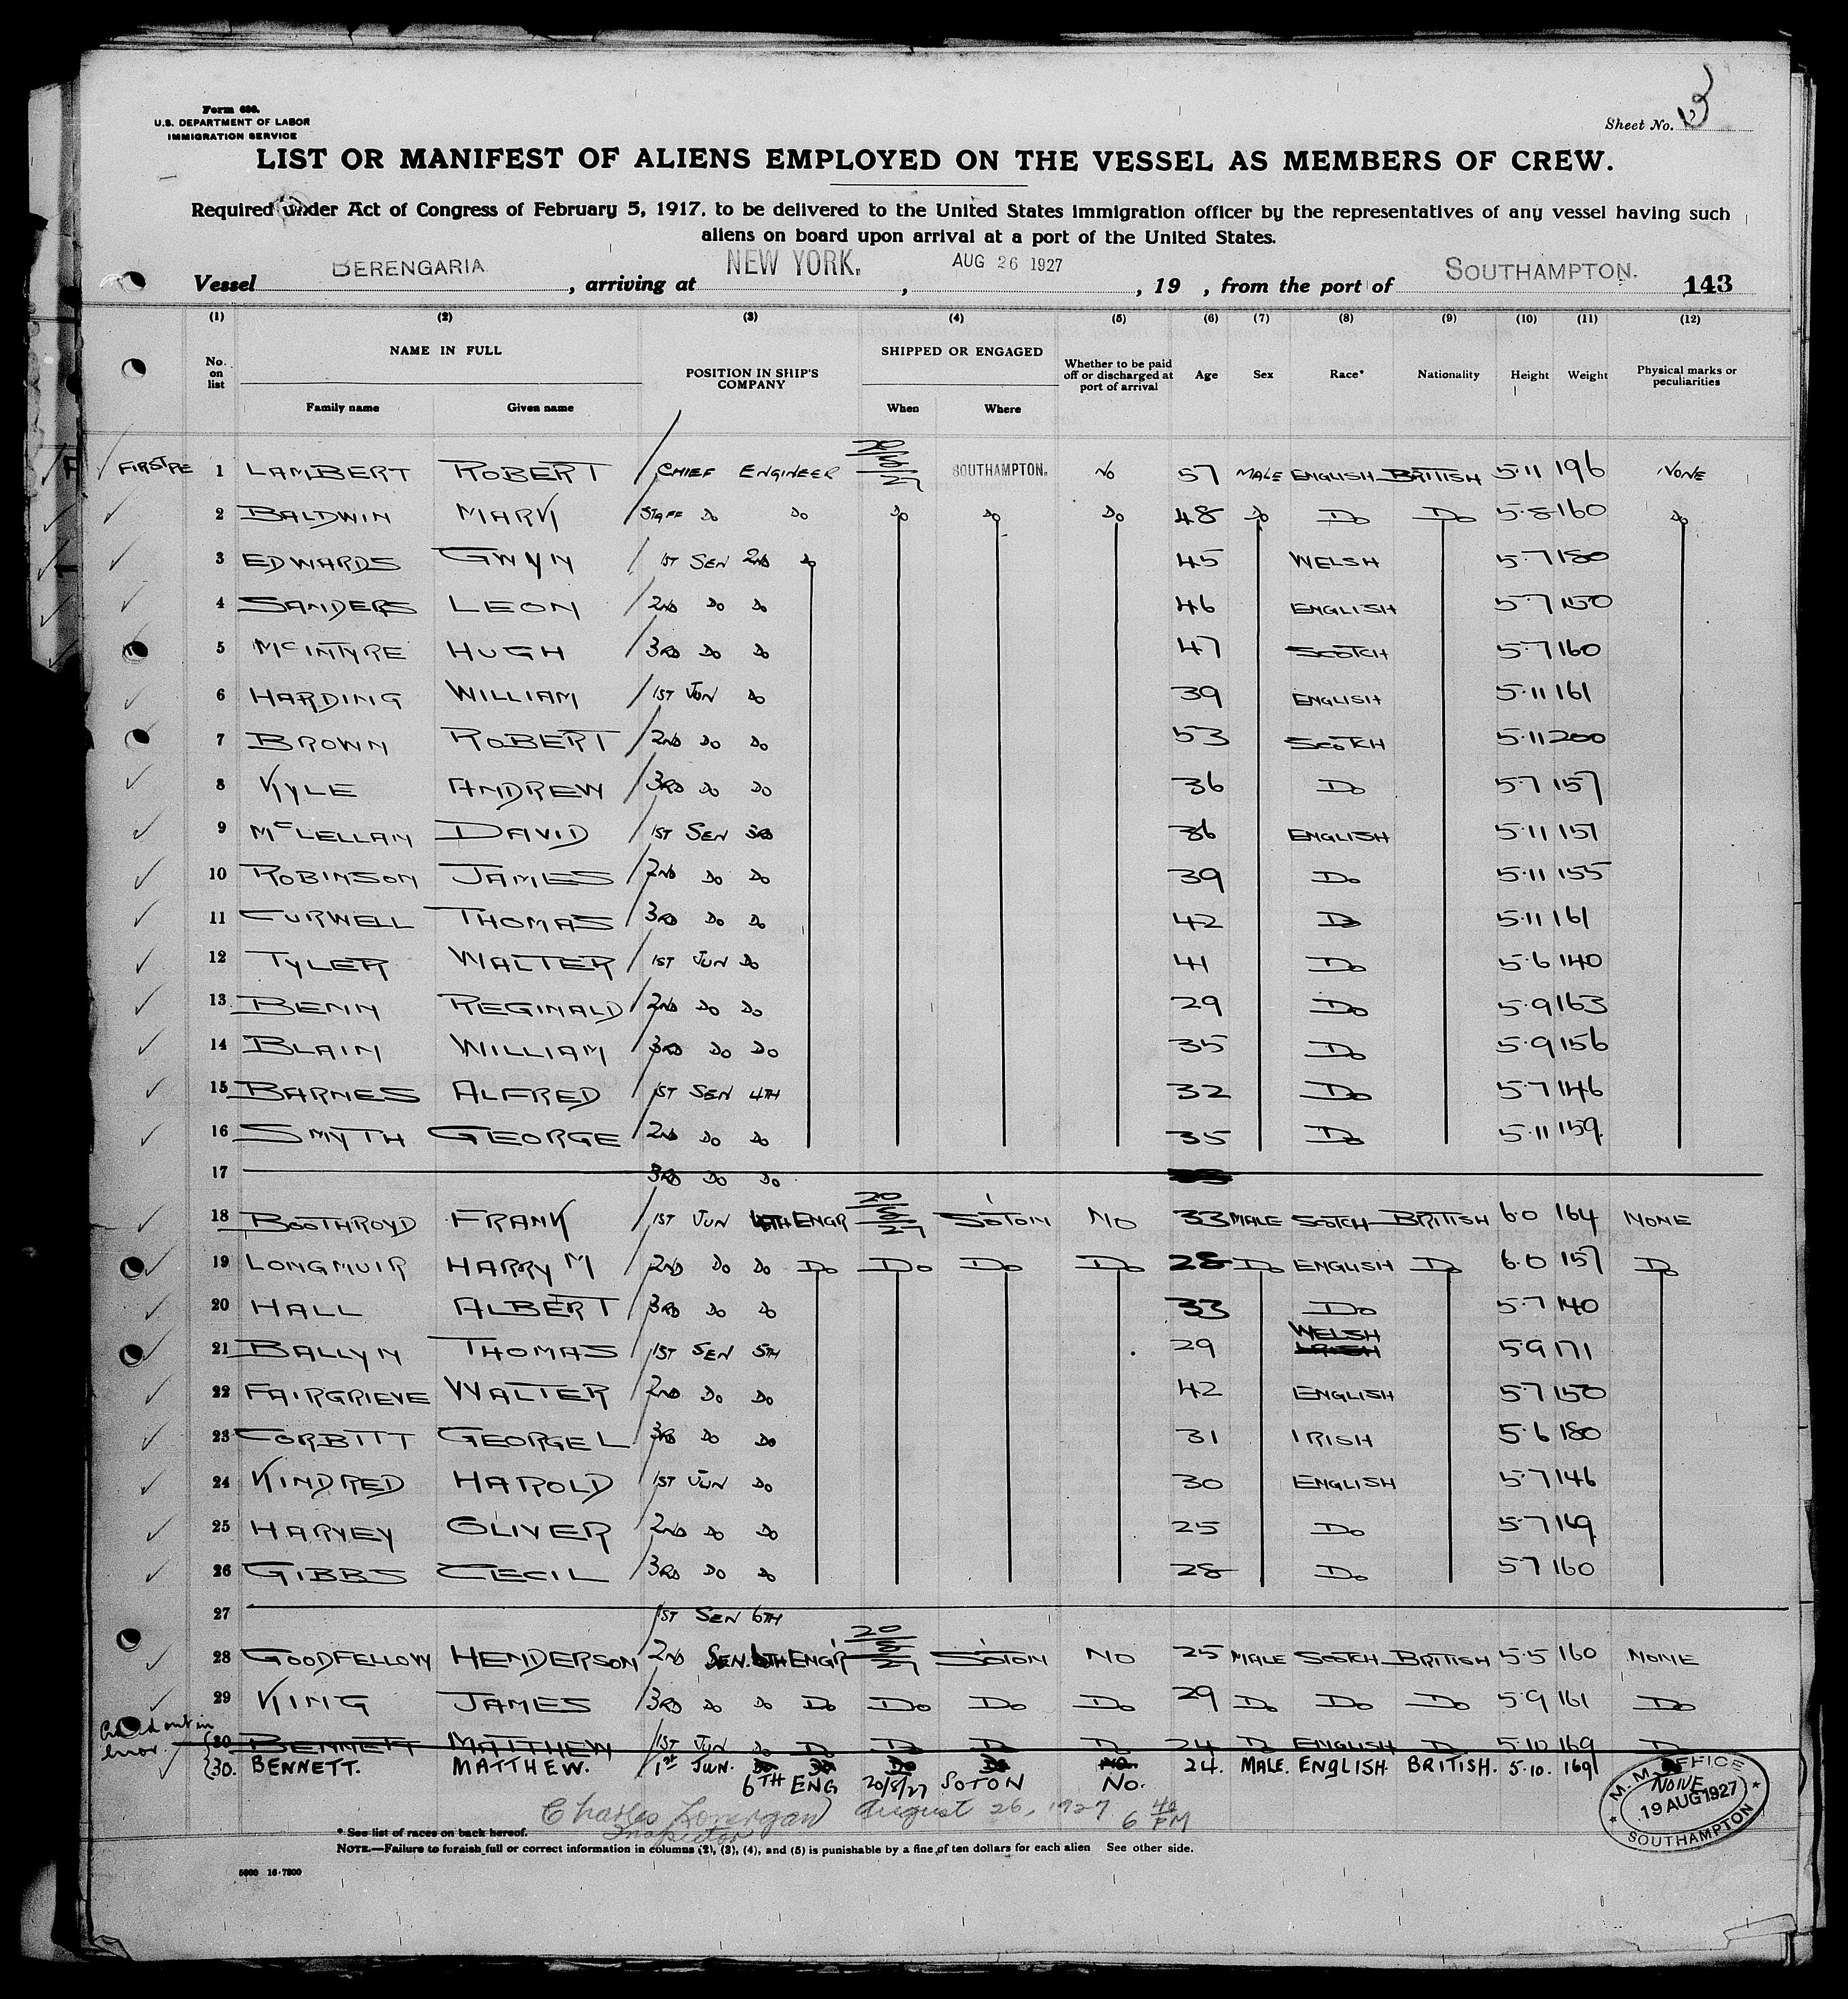 Form 680.
U.S. DEPARTMENT OF LABOR
IMMIGRATION SERVICE
Sheet No. 3
LIST OR MANIFEST OF ALIENS EMPLOYED ON THE VESSEL AS MEMBERS OF CREW.
Required under Act of Congress of February 5, 1917, to be delivered to the United States immigration officer by the representatives of any vessel having such
aliens on board upon arrival at a port of the United States.
Vessel BERENGARIA, arriving at NEW YORK, AUG 26 1927, 19 , from the port of SOUTHAMPTON. 143
(1) (2) (3) (4) (5) (6) (7) (8) (9) (10) (11) (12)
No. on list NAME IN FULL Family name Given name POSITION IN SHIP'S COMPANY SHIPPED OR ENGAGED When Where Whether to be paid off or discharged at port of arrival Age Sex Race* Nationality Height Weight Physical marks or peculiarities
1 LAMBERT ROBERT CHIEF ENGINEER 20/8/27 SOUTHAMPTON. NO 57 MALE ENGLISH BRITISH 5·11 196 NONE
2 BALDWIN MARK STAFF DO DO DO DO DO 48 DO DO DO 5·8 160 DO
3 EDWARDS GWYN 1ST SEN 2ND DO 45 WELSH 5·7 180
4 SANDERS LEON 2ND DO DO 46 ENGLISH 5·7 150
5 McINTYRE HUGH 3RD DO DO 47 SCOTCH 5·7 160
6 HARDING WILLIAM 1ST JUN DO 39 ENGLISH 5·11 161
7 BROWN ROBERT 2ND DO DO 53 SCOTCH 5·11 200
8 KYLE ANDREW 3RD DO DO 36 DO 5·7 157
9 McLELLAN DAVID 1ST SEN 3RD 36 ENGLISH 5·11 157
10 ROBINSON JAMES 2ND DO DO 39 DO 5·11 155
11 CURWELL THOMAS 3RD DO DO 42 DO 5·11 161
12 TYLER WALTER 1ST JUN DO 41 DO 5·6 140
13 BENN REGINALD 2ND DO DO 29 DO 5·9 163
14 BLAIN WILLIAM 3RD DO DO 35 DO 5·9 156
15 BARNES ALFRED 1ST SEN 4TH 32 DO 5·7 146
16 SMYTH GEORGE 2ND DO DO 35 DO 5·11 159
17 3RD DO DO
18 BOOTHROYD FRANK 1ST JUN 4TH ENGR 20/8/27 SOTON NO 33 MALE SCOTCH BRITISH 6·0 164 NONE
19 LONGMUIR HARRY M 2ND DO DO DO DO DO DO 28 DO ENGLISH DO 6·0 157 DO
20 HALL ALBERT 3RD DO DO 33 DO 5·7 140
21 BALLYN THOMAS 1ST SEN 5TH 29 WELSH IRISH 5·9 171
22 FAIRGRIEVE WALTER 2ND DO DO 42 ENGLISH 5·7 150
23 CORBITT GEORGE L 3RD DO DO 31 IRISH 5·6 180
24 KINDRED HAROLD 1ST JUN DO 30 ENGLISH 5·7 146
25 HARVEY OLIVER 2ND DO DO 25 DO 5·7 169
26 GIBBS CECIL 3RD DO DO 28 DO 5·7 160
27 1ST SEN 6TH
28 GOODFELLOW HENDERSON 2ND SEN. 6TH ENGR 20/8/27 SOTON NO 25 MALE SCOTCH BRITISH 5·5 160 NONE
29 KING JAMES 3RD DO DO DO DO DO DO 29 DO DO DO 5·9 161 DO
out in error
30 BENNETT MATTHEW 1ST JUN DO DO DO DO DO 24 DO ENGLISH DO 5·10 169 DO
30. BENNETT. MATTHEW. 1st JUN. 6TH ENG 20/8/27 SOTON NO. 24. MALE. ENGLISH. BRITISH. 5·10. 169 NONE
M.M. OFFICE 19 AUG 1927 SOUTHAMPTON
Charles Lonergan August 26, 1927 6 40 PM
Inspector
* See list of races on back hereof.
NOTE.—Failure to furnish full or correct information in columns (2), (3), (4), and (5) is punishable by a fine of ten dollars for each alien See other side.